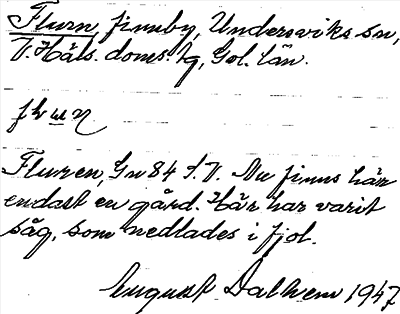 Flurn, finnby, Undersviks sn,
V. Häls. doms. hg, Gvl. län.
Fluren, Gv 84 S.V. Nu finns här
endast en gård. Här har varit
såg, som nedlades i fjol.
August Dalhem 1947